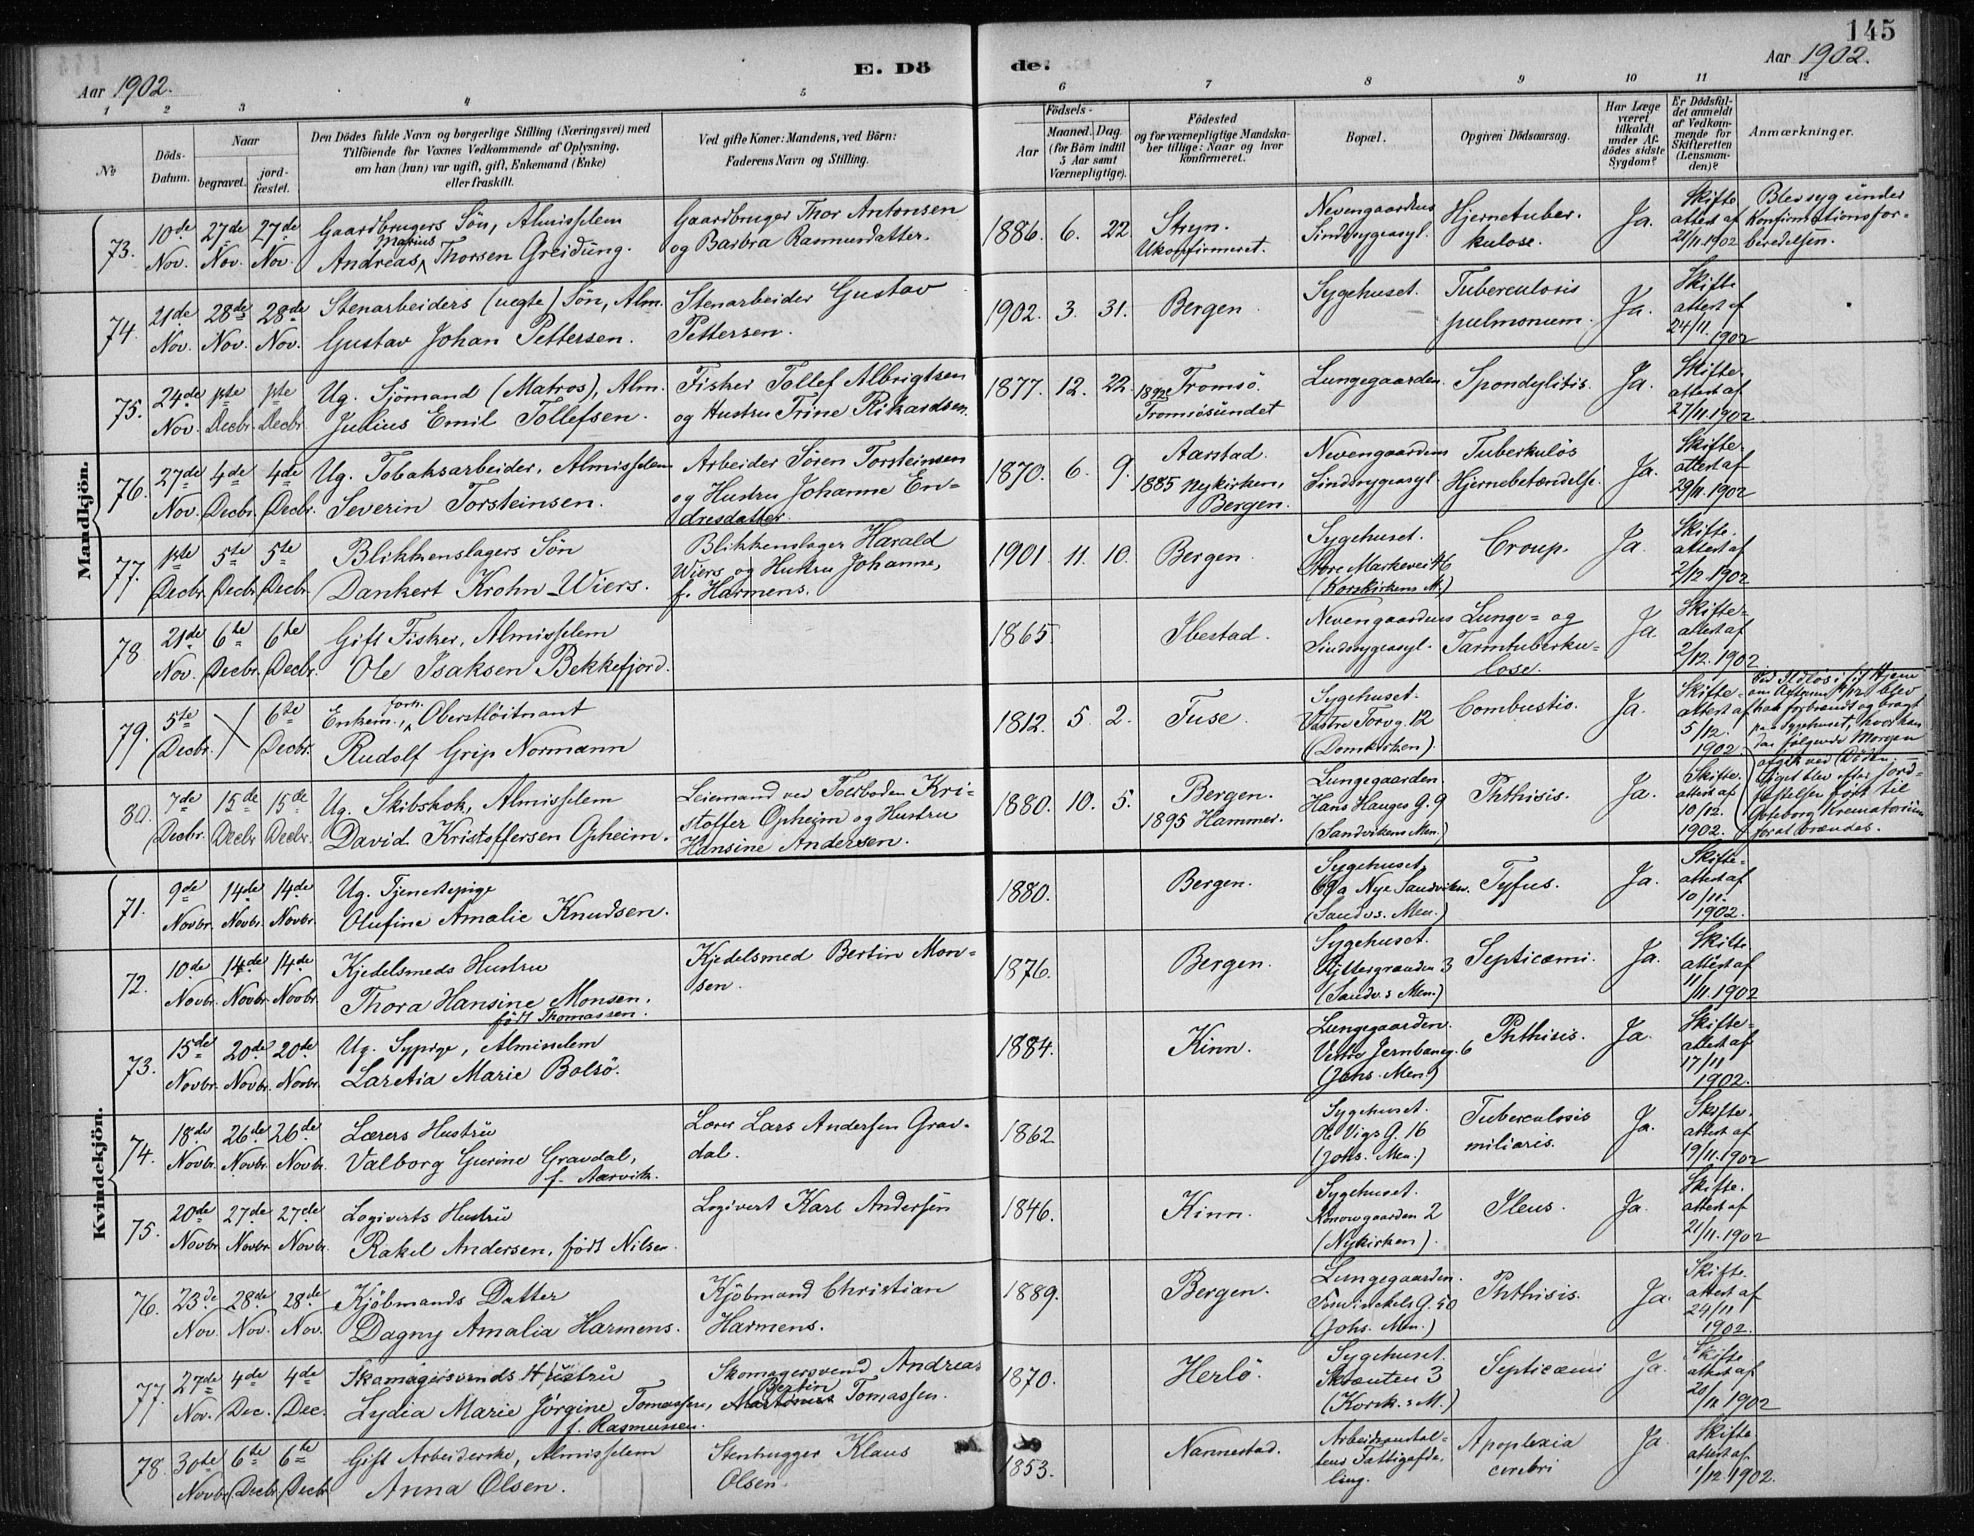 145
Aar 1902.
E. Döde.
Aar 1902.
1 2 3 4 5 6 7 8 9 10 11 12
No
Döds-Datum.
Naar
begravet.
jordfæstet.
Den Dödes fulde Navn og borgerlige Stilling (Næringsvei) med
Tilföiende for Voxnes Vedkommende af Oplysning,
om han (hun) var ugift, gift, Enkemand (Enke)
eller fraskilt.
Ved gifte Koner: Mandens, ved Börn:
Faderens Navn og Stilling.
Födsels-
Aar
Maaned. Dag.
(for Börn indtil
5 Aar samt
Værnepligtige).
Födested
og for værnepligtige Mandska-
ber tillige: Naar og hvor
konfirmeret.
Bopæl.
Opgiven Dödsaarsag.
Har Læge
været
tilkaldt
under Af-
dödes sidste
Sygdom?
Er Dödsfal-
det anmeldt
af Vedkom-
mende for
Skifteretten
(Lensman-
den)?
Anmærkninger.
Mandkjön.
73. 10de Nov. 27de Nov. 27de Nov.
Gaardbrugers Sön, Almisselem
Andreas Marius Thorsen Greidung.
Gaardbruger Thor Antonsen
og Barbra Rasmusdatter.
1886. 6. 22.
Stryn.
Ukonfirmeret.
Nevengaardens
Sindssygeasyl.
Hjernetuber-
kulose.
Ja.
Skifte
attest af
21/11.1902
Blev syg under
Konfirmationsfor-
beredelsen.
74. 21de Nov. 28de Nov. 28de Nov.
Stenarbeiders (uægte) Sön, Alm.
Gustav Johan Pettersen.
Stenarbeider Gustav
Pettersen.
1902. 3. 31.
Bergen
Sygehuset.
Tuberculosis
pulmonum.
Ja.
Skifte
attest af
24/11 1902
75. 24de Nov. 1ste Decbr. 1ste Decbr.
Ug. Sjömand (Matros), Alm.
Julius Emil Tollefsen.
Fisker Tollef Albrigtsen
og Hustru Trine Rikardsen.
1877. 12. 22.
Tromsö.
1892 Tromsösundet
Lungegaarden.
Spondylitis.
Ja.
Skifte.
attest af
27/11.1902
76. 27de Nov. 4de Decbr. 4de Decbr.
Ug. Tobaksarbeider, Almisselem
Severin Torsteinsen.
Arbeider Sören Torsteinsen
og Hustru Johanne En-
dresdatter.
1870. 6. 9.
Aarstad.
1885 Nykirken,
Bergen.
Nevengaardens
Sindssygeasyl.
Tuberkulös
Hjernebetændelse.
Ja.
Skifte.
attest af
29/11.1902
77. 1ste Decbr. 5te Decbr. 5te Decbr.
Blikkenslagers Sön
Dankert Krohn Wiers.
Blikkenslager Harald
Wiers og Hustru Johanne,
f. Harmens.
1901. 11. 10.
Bergen
Sygehuset.
Store Markevei 46
(Korskirkens M.)
Croup.
Ja.
Skifte.
attest af
2/12.1902
78 21de Nov. 6te Decbr. 6te Decbr.
Gift Fisker, Almisselem
Ole Isaksen Bekkefjord.
1865.
Ibestad.
Nevengaardens
Sindssygeasyl.
Lunge- og
Tarmtuberku-
lose.
Ja
Skifte-
attest af
2/12.1902
79. 5te Decbr. 6te Decbr.
Enkem., forh. Oberstlöitnant
Rudolf Grip Normann
1812. 5 2.
Fuse.
Sygehuset.
Vestre Torvg. 12
(Domkirken).
Combustio.
Ja.
Skifte-
attest af
5/12.
1902
Ved Ildlös i sit Hjem
om Aftenen 4/12 blev
han forbrændt og bragt
paa Sygehuset, hvor han
den fölgende Morgen
afgik ved Döden. —
Liget blev efter Jord-
fæstelsen fört til
Göteborg Krematorium
forat brændes.
80. 7de Decbr. 15de Decbr 15de Decbr.
Ug. Skibskok, Almisselem
David Kristoffersen Opheim.
Leiemand ved Toldboden Kri-
stoffer Opheim og Hustru
Hansine Andersen.
1880. 10. 5.
Bergen.
1895 Hammer.
Lungegaarden.
Hans Hauges G. 9
(Sandvikens Men.)
Phthisis.
Ja.
Skifte.
attest af
10/12.
1902.
Kvindekjön.
71. 9de Novbr. 14de Novbr. 14de Novbr.
Ug. Tjenestepige
Olufine Amalie Knudsen.
1880.
Bergen.
Sygehuset,
69a Nye Sandviksv.
(Sandvs. Men.)
Tyfus.
Ja.
Skifte-
attest af
10/11.
1902.
72. 10de Novbr. 14de Novbr. 14de Novbr.
Kjedelsmeds Hustru
Thora Hansine Monsen,
födt Thomassen.
Kjedelsmed Bertin Mon-
sen.
1876.
Bergen.
Sygehuset.
3
(Sandvs Men.)
Septicæmi.
Ja.
Skifte.
attest af
11/11.1902
73. 15de Novbr. 20de Novbr. 20de Novbr.
Ug. Sypige, Almisselem
Laretia Marie Bolsö.
1884.
Kinn.
Lungegaarden.
Vestre Jernbaneg. 6
(Johs. Men.)
Phthisis.
Ja.
Skifte-
attest af
17/11
1902.
74. 18de Novbr. 26de Novbr. 26de Novbr.
Lærers Hustru
Valborg Gurine Gravdal,
f. Aarvik.
Lærer Lars Andersen Grav-
dal.
1862.
Sygehuset.
Ole Vigs G. 16
(Johs. Men.)
Tuberculosis
miliaris.
Ja.
Skifte.
attest af
19/11.1902
75. 20de Novbr. 27de Novbr. 27de Novbr.
Logiverts Hustru
Rakel Andersen, födt Nilsen.
Logivert Karl Andersen
1846.
Kinn.
Sygehuset.
Konowgaarden 2
(Nykirken).
Ileus.
Ja.
Skifte.
attest af
21/11.1902
76. 23de Nov. 28de Nov. 28de Nov.
Kjöbmands Datter
Dagny Amalia Harmens.
Kjöbmand Christian
Harmens.
1889.
Bergen.
Lungegaarden.
G. 50
(Johs. Men.)
Phthisis.
Ja.
Skifte.
attest af
24/11
1902.
77. 27de Nov. 4de Dec. 4de Dec.
Skomagersvends Hustru
Lydia Marie Jörgine Tomassen,
f. Rasmussen.
Skomagersvend Andreas
Bertin Tomassen.
1870.
Herlö.
Sygehuset.
Skrænten 3
(Korsk.s M.)
Septicæmi
Ja.
Skifte
attest af
1902
78. 30te Novbr. 6te Decbr. 6te Decbr.
Gift Arbeiderske, Almisselem
Anna Olsen.
Stenhugger Klaus
Olsen.
1853.
Nannestad.
Arbeidsanstal-
tens Fattigafde-
ling.
Apoplexia
cerebri
Ja
Skifte
attest af
1/12.1902.